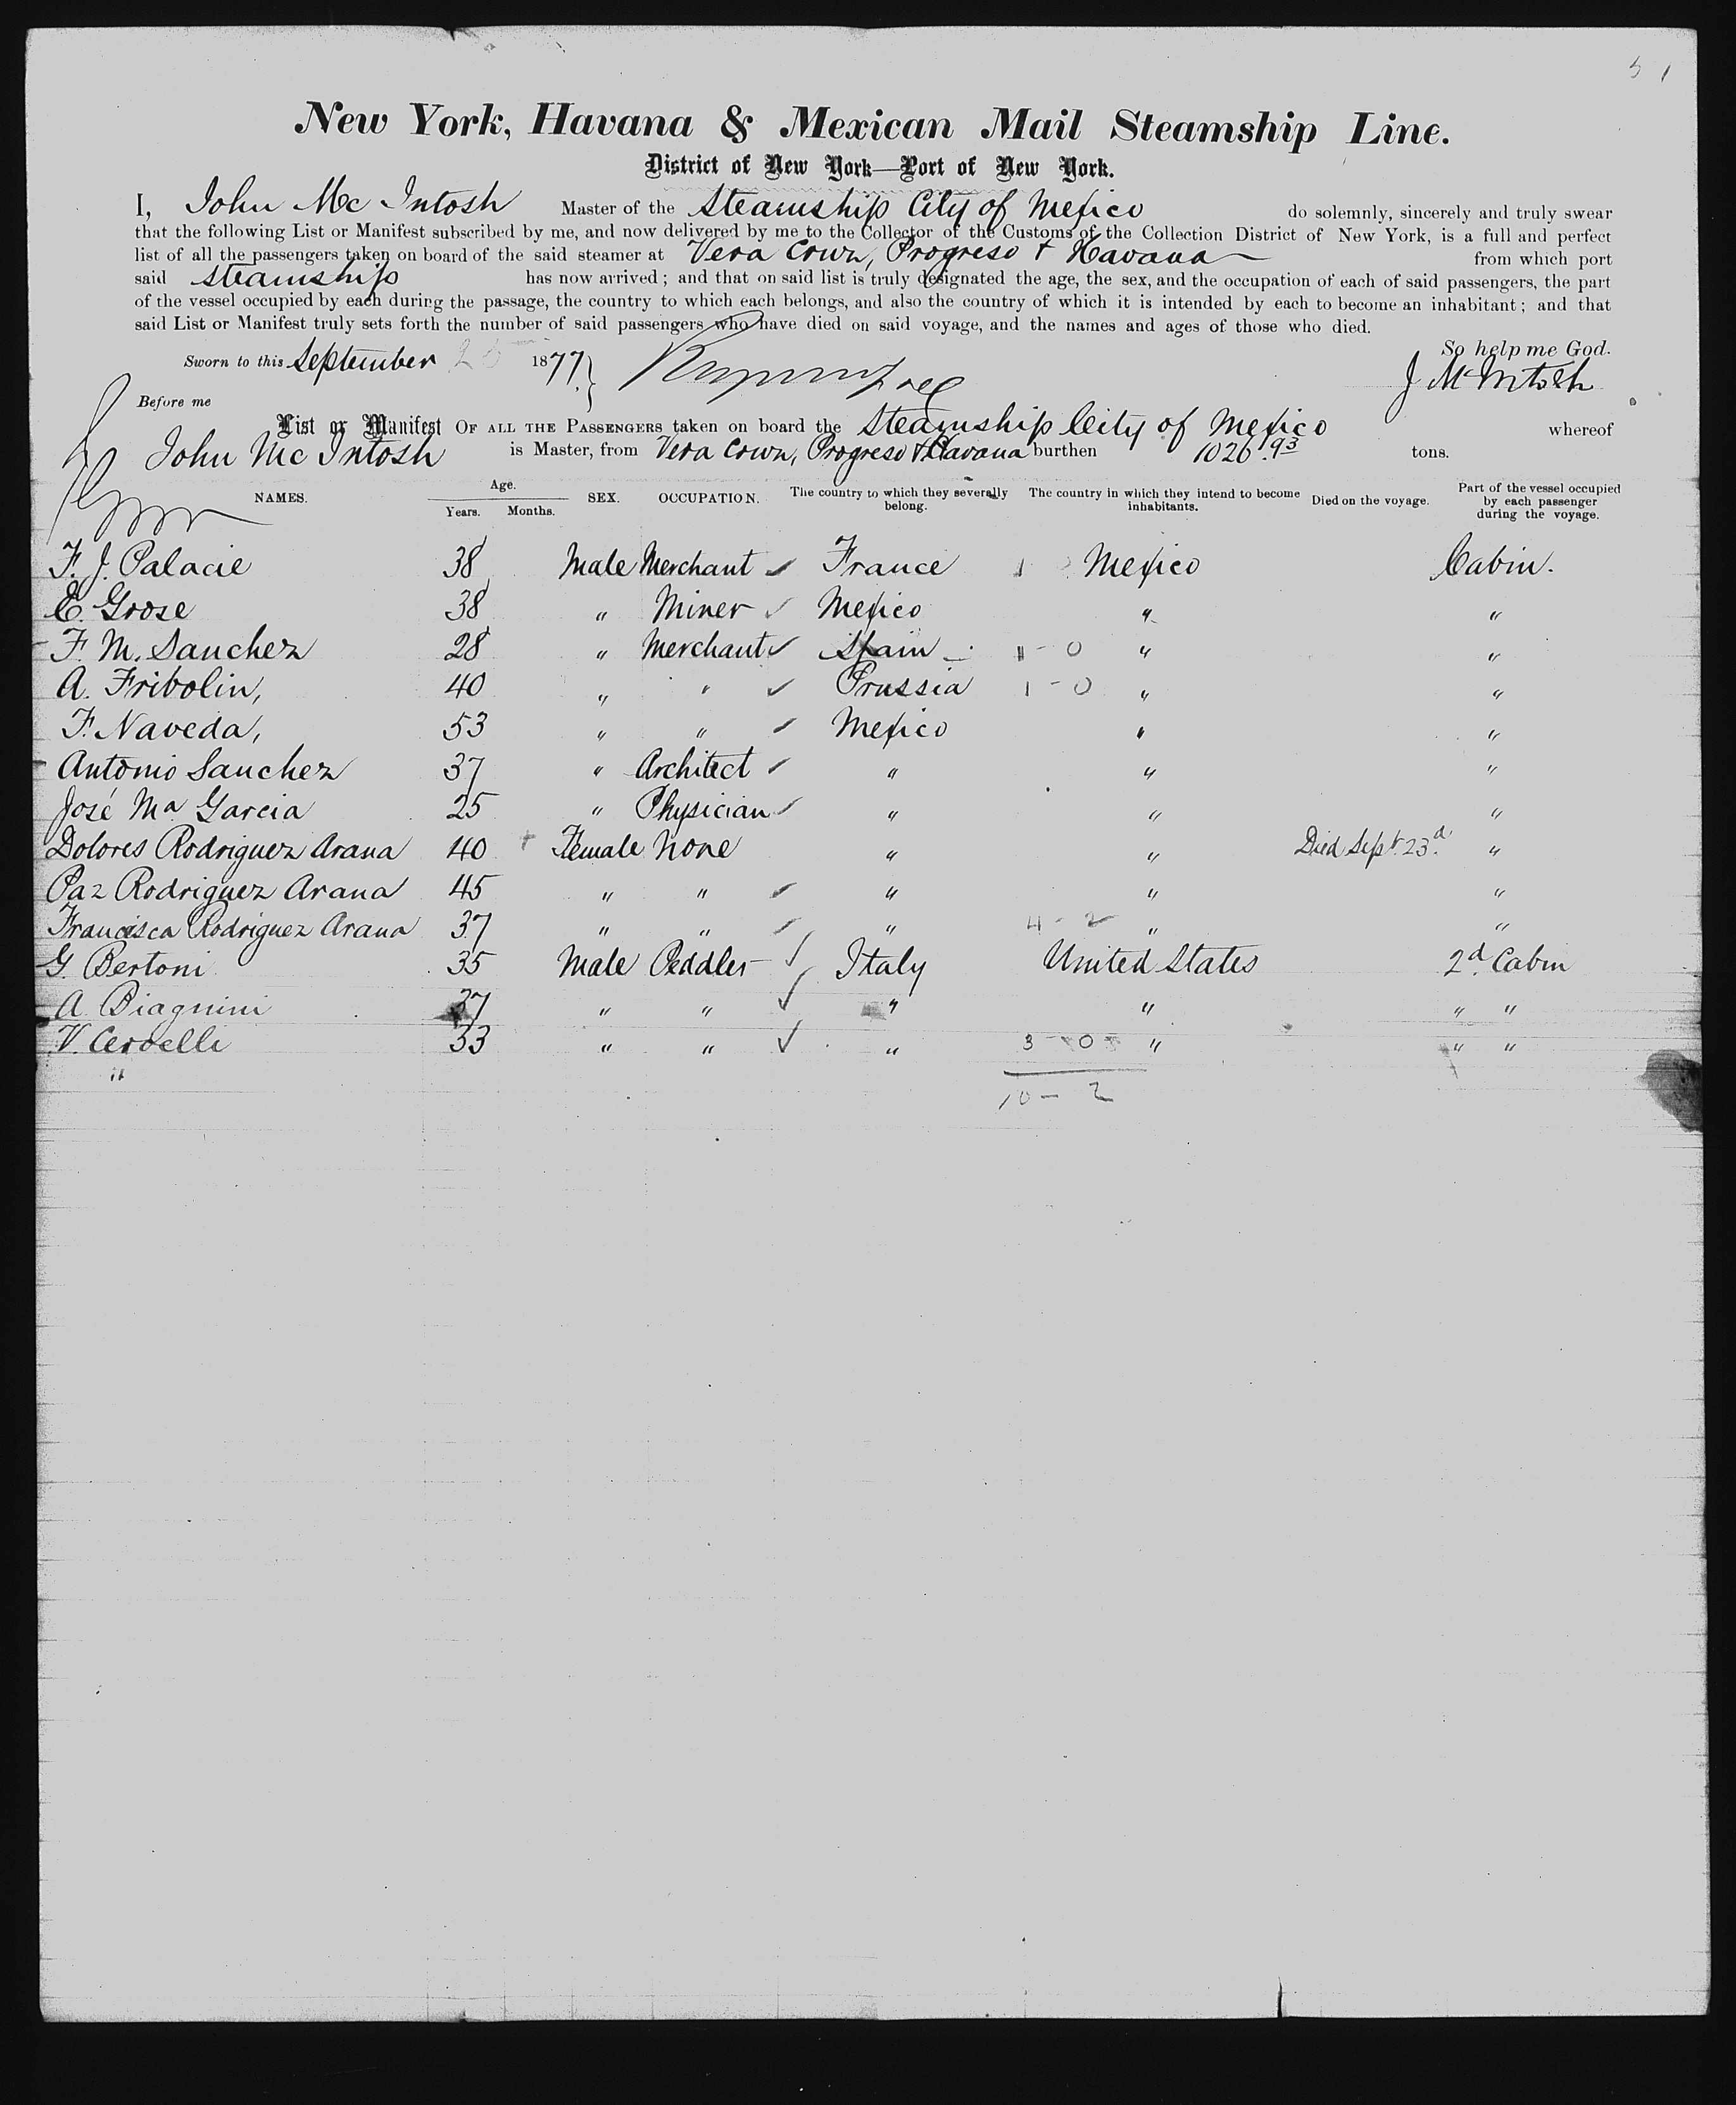 5 1
New York, Havana & Mexican Mail Steamship Line.
District of New York—Port of New York.
I, John Mc Intosh Master of the Steamship City of Mexico do solemnly, sincerely and truly swear
that the following List or Manifest subscribed by me, and now delivered by me to the Collector of the Customs of the Collection District of New York, is a full and perfect
list of all the passengers taken on board of the said steamer at Vera Cruz, Progreso & Havana from which port
said steamship has now arrived; and that on said list is truly designated the age, the sex, and the occupation of each of said passengers, the part
of the vessel occupied by each during the passage, the country to which each belongs, and also the country of which it is intended by each to become an inhabitant; and that
said List or Manifest truly sets forth the number of said passengers who have died on said voyage, and the names and ages of those who died.
So help me God.
Sworn to this September 1877 J McIntosh
Before me
List or Manifest OF ALL THE PASSENGERS taken on board the Steamship City of Mexico whereof
John Mc Intosh is Master, from Vera Cruz, Progreso & Havana burthen 1026.93 tons.
NAMES. Age. Years. Months. SEX. OCCUPATION. The country to which they severally belong. The country in which they intend to become inhabitants. Died on the voyage. Part of the vessel occupied by each passenger during the voyage.
F. J. Palacie 38 Male Merchant ✓ France 1 Mexico Cabin.
E. Grose 38 " Miner ✓ Mexico " "
F. M. Sanchez 28 " Merchant ✓ Spain 1 - 0 " "
A. Fribolin, 40 " " ✓ Prussia 1 - 0 " "
F. Naveda, 53 " " ✓ Mexico " "
Antonio Sanchez 37 " Architect ✓ " " "
José Ma Garcia 25 " Physician ✓ " " "
Dolores Rodriguez Arana 40 + Female None " " Died Sept. 23d "
Paz Rodriguez Arana 45 " " ✓ " " "
Francisca Rodriguez Arana 37 " " ✓ " 4 - 2 " "
G. Bertoni 35 Male Peddler ✓ Italy United States 2d Cabin
A. Biagnini 37 " " ✓ " " " "
V. Cerdelli 33 " " ✓ " 3 - 0 " " "
10 - 2